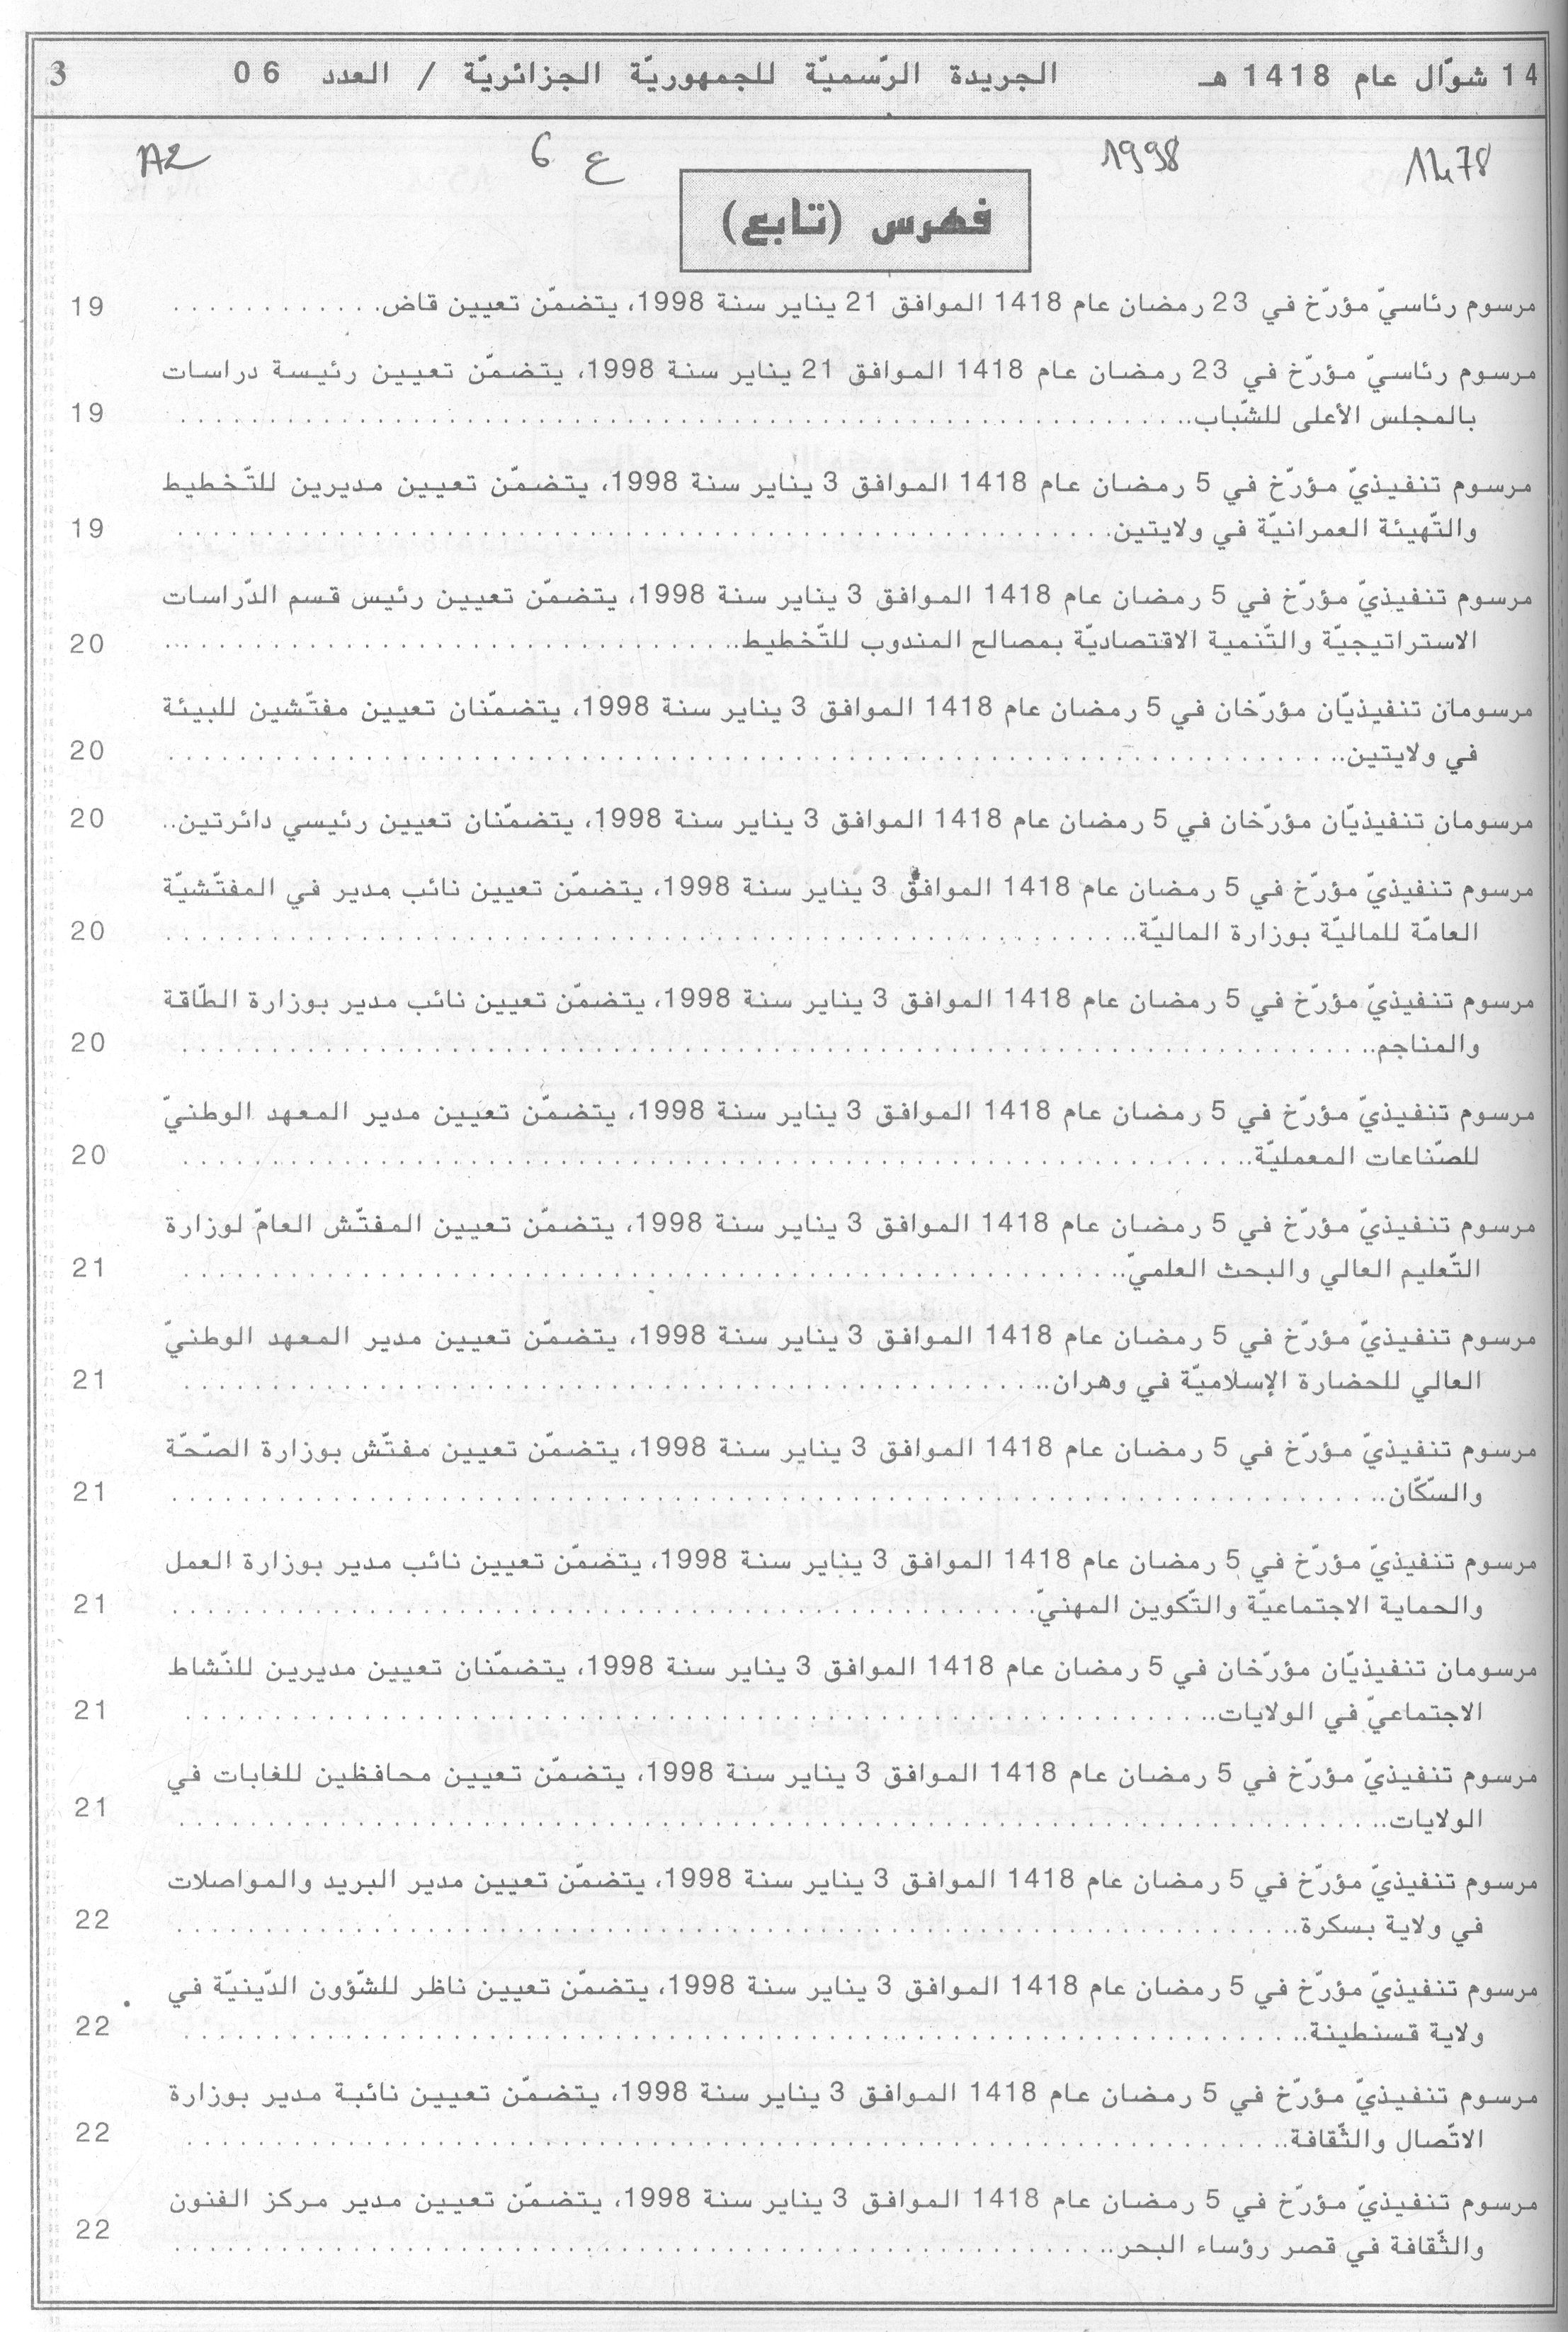 14 شوّال عام 1418 هـ الجريدة الرّسميّة للجمهوريّة الجزائريّة / العدد 06 3
1998 ع 6 A2
فهرس (تابع)
مرسوم رئاسيّ مؤرّخ في 23 رمضان عام 1418 الموافق 21 يناير سنة 1998، يتضمّن تعيين قاض............. 19
مرسوم رئاسيّ مؤرّخ في 23 رمضان عام 1418 الموافق 21 يناير سنة 1998، يتضمّن تعيين رئيسة دراسات
بالمجلس الأعلى للشّباب............. 19
مرسوم تنفيذيّ مؤرّخ في 5 رمضان عام 1418 الموافق 3 يناير سنة 1998، يتضمّن تعيين مديرين للتّخطيط
والتّهيئة العمرانيّة في ولايتين............. 19
مرسوم تنفيذيّ مؤرّخ في 5 رمضان عام 1418 الموافق 3 يناير سنة 1998، يتضمّن تعيين رئيس قسم الدّراسات
الاستراتيجيّة والتّنمية الاقتصاديّة بمصالح المندوب للتّخطيط............. 20
مرسومان تنفيذيّان مؤرّخان في 5 رمضان عام 1418 الموافق 3 يناير سنة 1998، يتضمّنان تعيين مفتّشين للبيئة
في ولايتين............. 20
مرسومان تنفيذيّان مؤرّخان في 5 رمضان عام 1418 الموافق 3 يناير سنة 1998، يتضمّنان تعيين رئيسي دائرتين.. 20
مرسوم تنفيذيّ مؤرّخ في 5 رمضان عام 1418 الموافق 3 يناير سنة 1998، يتضمّن تعيين نائب مدير في المفتّشيّة
العامّة للماليّة بوزارة الماليّة............. 20
مرسوم تنفيذيّ مؤرّخ في 5 رمضان عام 1418 الموافق 3 يناير سنة 1998، يتضمّن تعيين نائب مدير بوزارة الطّاقة
والمناجم............. 20
مرسوم تنفيذيّ مؤرّخ في 5 رمضان عام 1418 الموافق 3 يناير سنة 1998، يتضمّن تعيين مدير المعهد الوطنيّ
للصّناعات المعمليّة............. 20
مرسوم تنفيذيّ مؤرّخ في 5 رمضان عام 1418 الموافق 3 يناير سنة 1998، يتضمّن تعيين المفتّش العامّ لوزارة
التّعليم العالي والبحث العلميّ............. 21
مرسوم تنفيذيّ مؤرّخ في 5 رمضان عام 1418 الموافق 3 يناير سنة 1998، يتضمّن تعيين مدير المعهد الوطنيّ
العالي للحضارة الإسلاميّة في وهران............. 21
مرسوم تنفيذيّ مؤرّخ في 5 رمضان عام 1418 الموافق 3 يناير سنة 1998، يتضمّن تعيين مفتّش بوزارة الصّحّة
والسّكّان............. 21
مرسوم تنفيذيّ مؤرّخ في 5 رمضان عام 1418 الموافق 3 يناير سنة 1998، يتضمّن تعيين نائب مدير بوزارة العمل
والحماية الاجتماعيّة والتّكوين المهنيّ............. 21
مرسومان تنفيذيّان مؤرّخان في 5 رمضان عام 1418 الموافق 3 يناير سنة 1998، يتضمّنان تعيين مديرين للنّشاط
الاجتماعيّ في الولايات............. 21
مرسوم تنفيذيّ مؤرّخ في 5 رمضان عام 1418 الموافق 3 يناير سنة 1998، يتضمّن تعيين محافظين للغابات في
الولايات............. 21
مرسوم تنفيذيّ مؤرّخ في 5 رمضان عام 1418 الموافق 3 يناير سنة 1998، يتضمّن تعيين مدير البريد والمواصلات
في ولاية بسكرة............. 22
مرسوم تنفيذيّ مؤرّخ في 5 رمضان عام 1418 الموافق 3 يناير سنة 1998، يتضمّن تعيين ناظر للشّؤون الدّينيّة في
ولاية قسنطينة............. 22
مرسوم تنفيذيّ مؤرّخ في 5 رمضان عام 1418 الموافق 3 يناير سنة 1998، يتضمّن تعيين نائبة مدير بوزارة
الاتّصال والثّقافة............. 22
مرسوم تنفيذيّ مؤرّخ في 5 رمضان عام 1418 الموافق 3 يناير سنة 1998، يتضمّن تعيين مدير مركز الفنون
والثّقافة في قصر رؤساء البحر............. 22